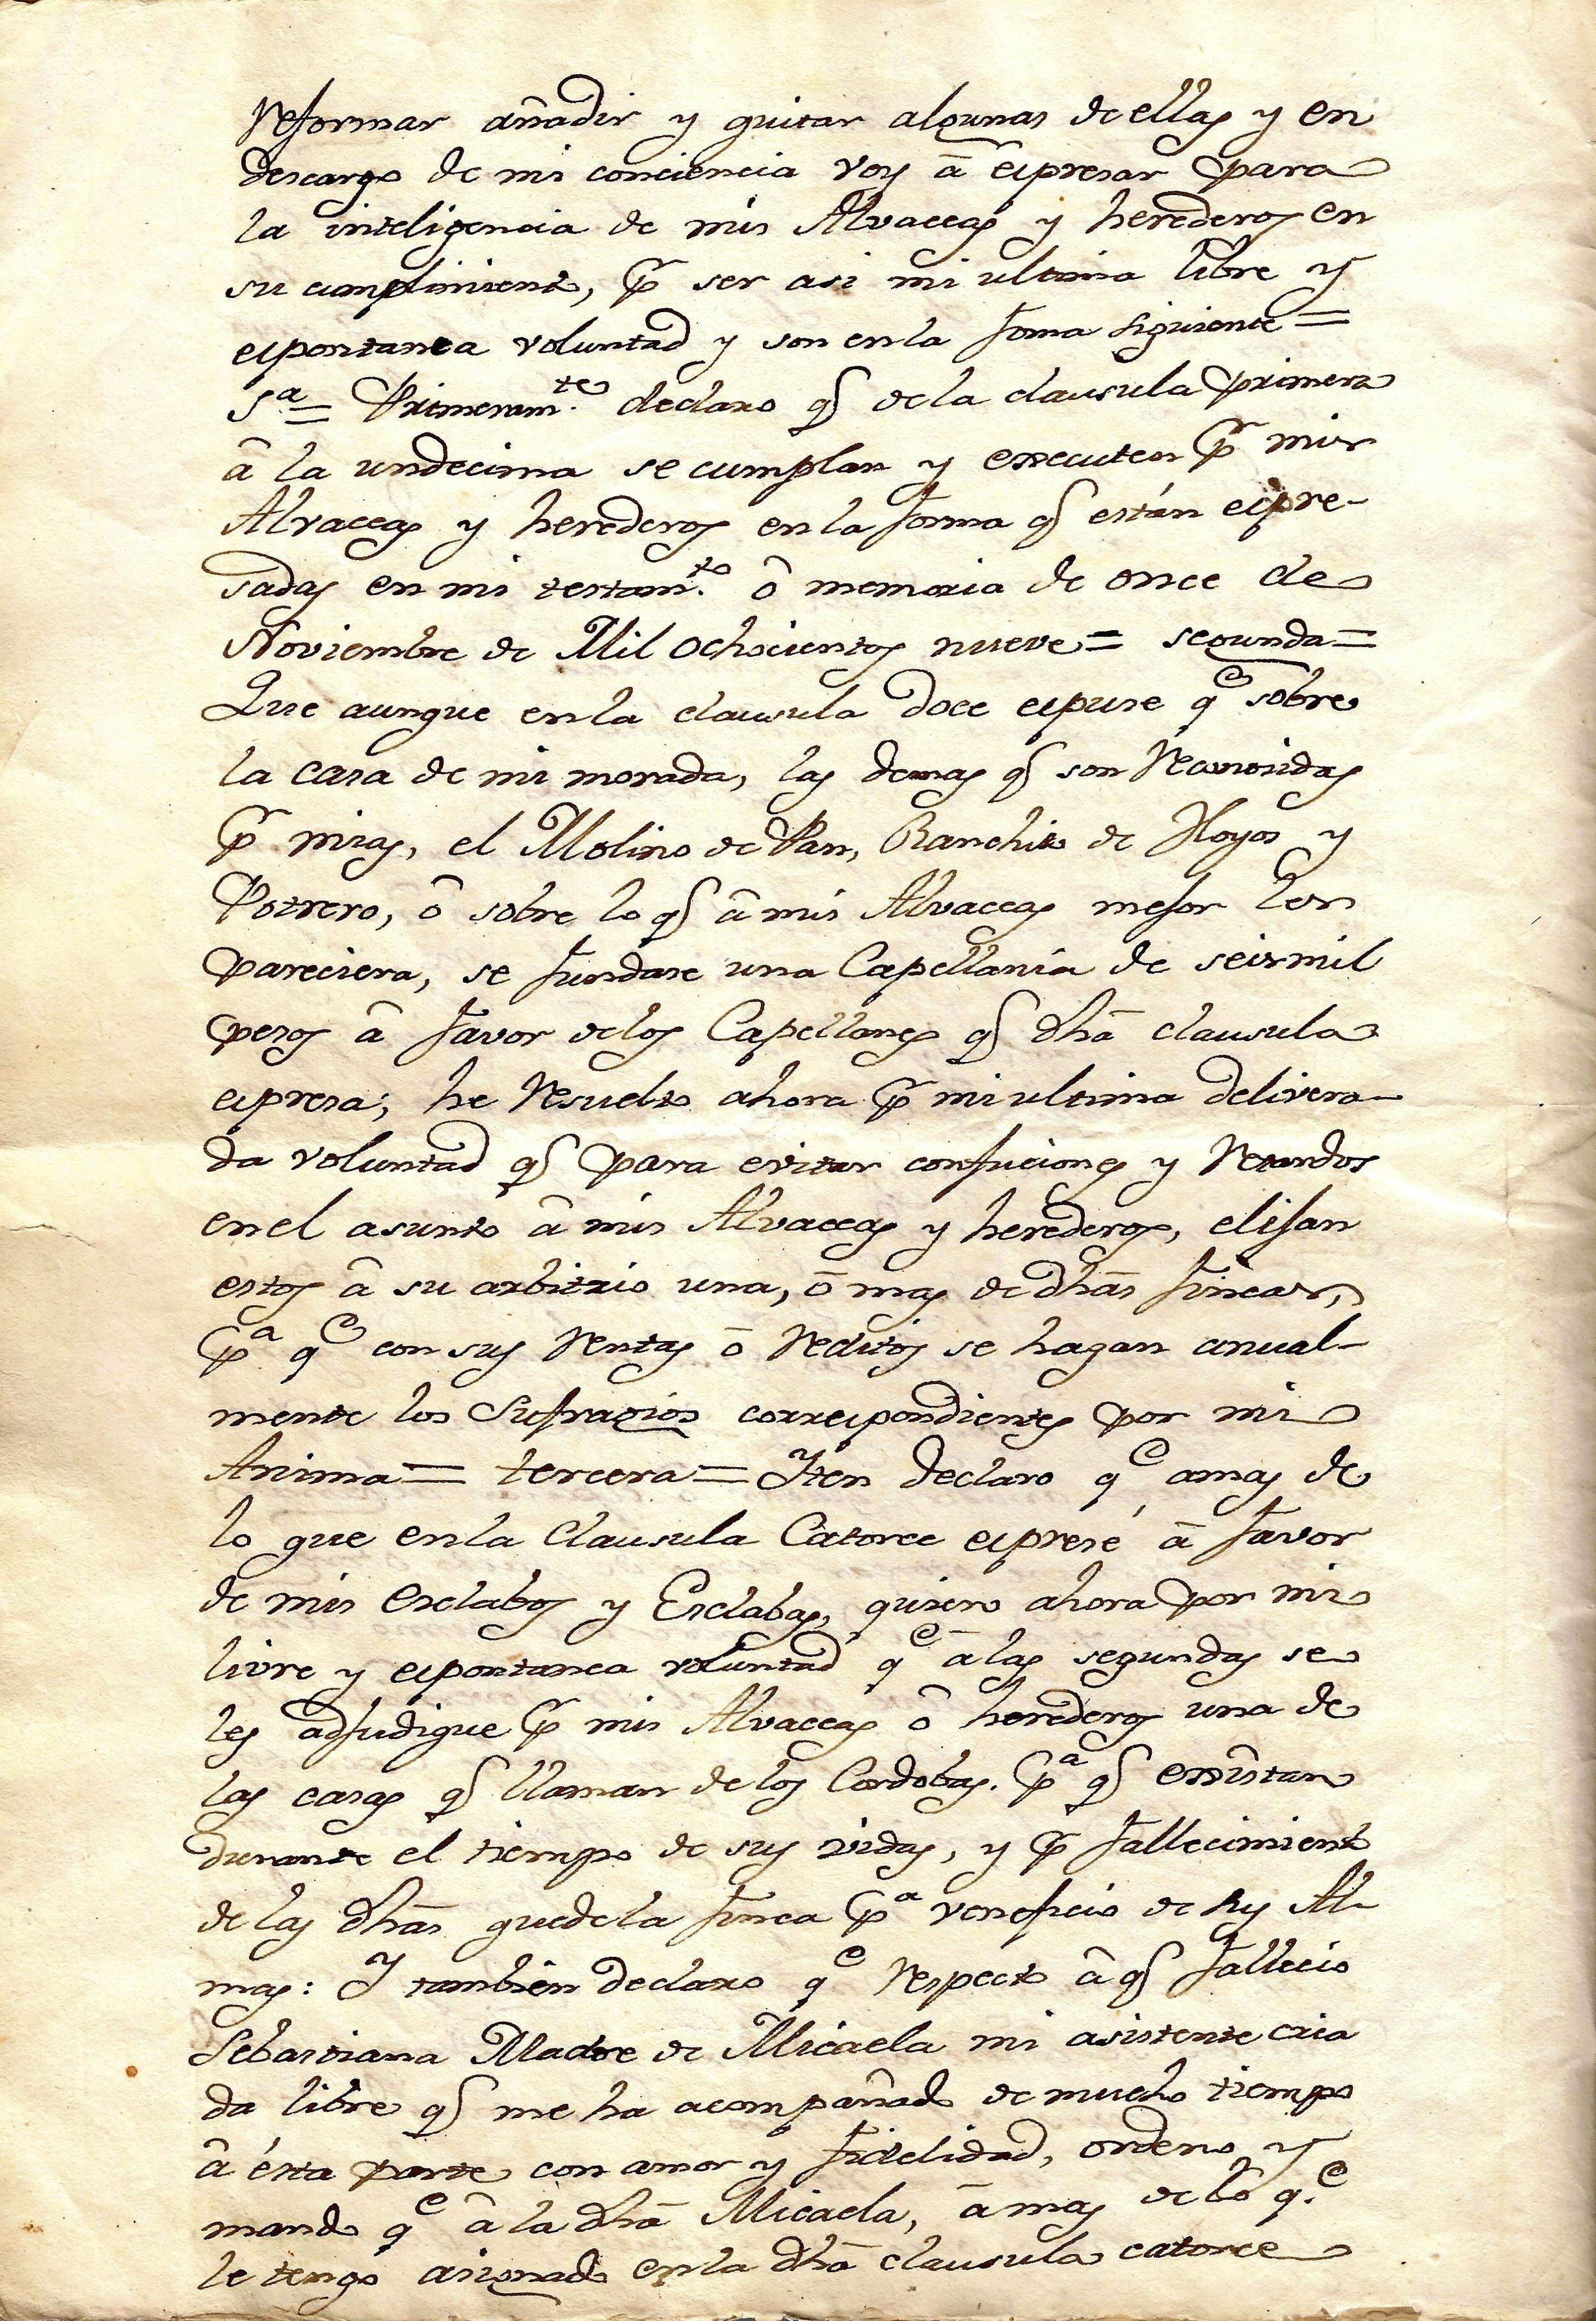 Reformar añadir y quitar algunas de ellas y en
descargo de mi conciencia voy â espresar para
la inteligencia de mis Alvaceas y herederos en
su cumplimiento, pr ser asi mi ultima libre y
espontanea voluntad y son en la forma siguiente =
Sa = Primeramte. declaro q de la clausula primera
â la undecima se cumplan y executen pr mis
Alvaceas y herederos en la forma q están espre-
sadas en mi testamto. ô memoria de once de
Noviembre de Mil ochocientos nueve = segunda =
Que aunque en la clausula doce espuse qe sobre
la casa de mi morada, las demas q son Reconocidas
pr mias, el Molino de Pan, Ranchito de Hoyos y
Potrero, ô sobre lo q â mis Alvaceas mejor les
pareciera, se fundase una Capellania de seis mil
pesos â favor de los Capellanes q dhã clausula
espresa; he Resuelto ahora pr mi ultima delivera-
da voluntad q para evitar confuciones y Retardos
en el asunto â mis Alvaceas y herederos, elijan
estos â su arbitrio una, ô mas de dhãs fincas,
pa qe con sus Rentas ô Reditos se hagan anual-
mente los Sufragios correspondientes por mi
Anima = tercera = Yten declaro qe amas de
lo que en la Clausula Catorce espresé â favor
de mis esclabos y Esclabas, quiero ahora por mi
livre y espontanea voluntad qe â las segundas se
les adjudique pr mis Alvaceas ô herederos una de
las casas q llaman de los Cordobas. pa q existan
durante el tiempo de sus vidas, y pr fallecimiento
de las dhãs quede la finca pa veneficio de sus Al-
mas: Y tambien declaro qe Respecto â q fallecio
Sebastiana Madre de Micaela mi asistente cria
da libre q me ha acompañado de mucho tiempo
â ésta parte con amor y fidelidad, ordeno y
mando qe â la dhã Micaela, â mas de lo q.e
le tengo asignado en la dhã clausula catorce